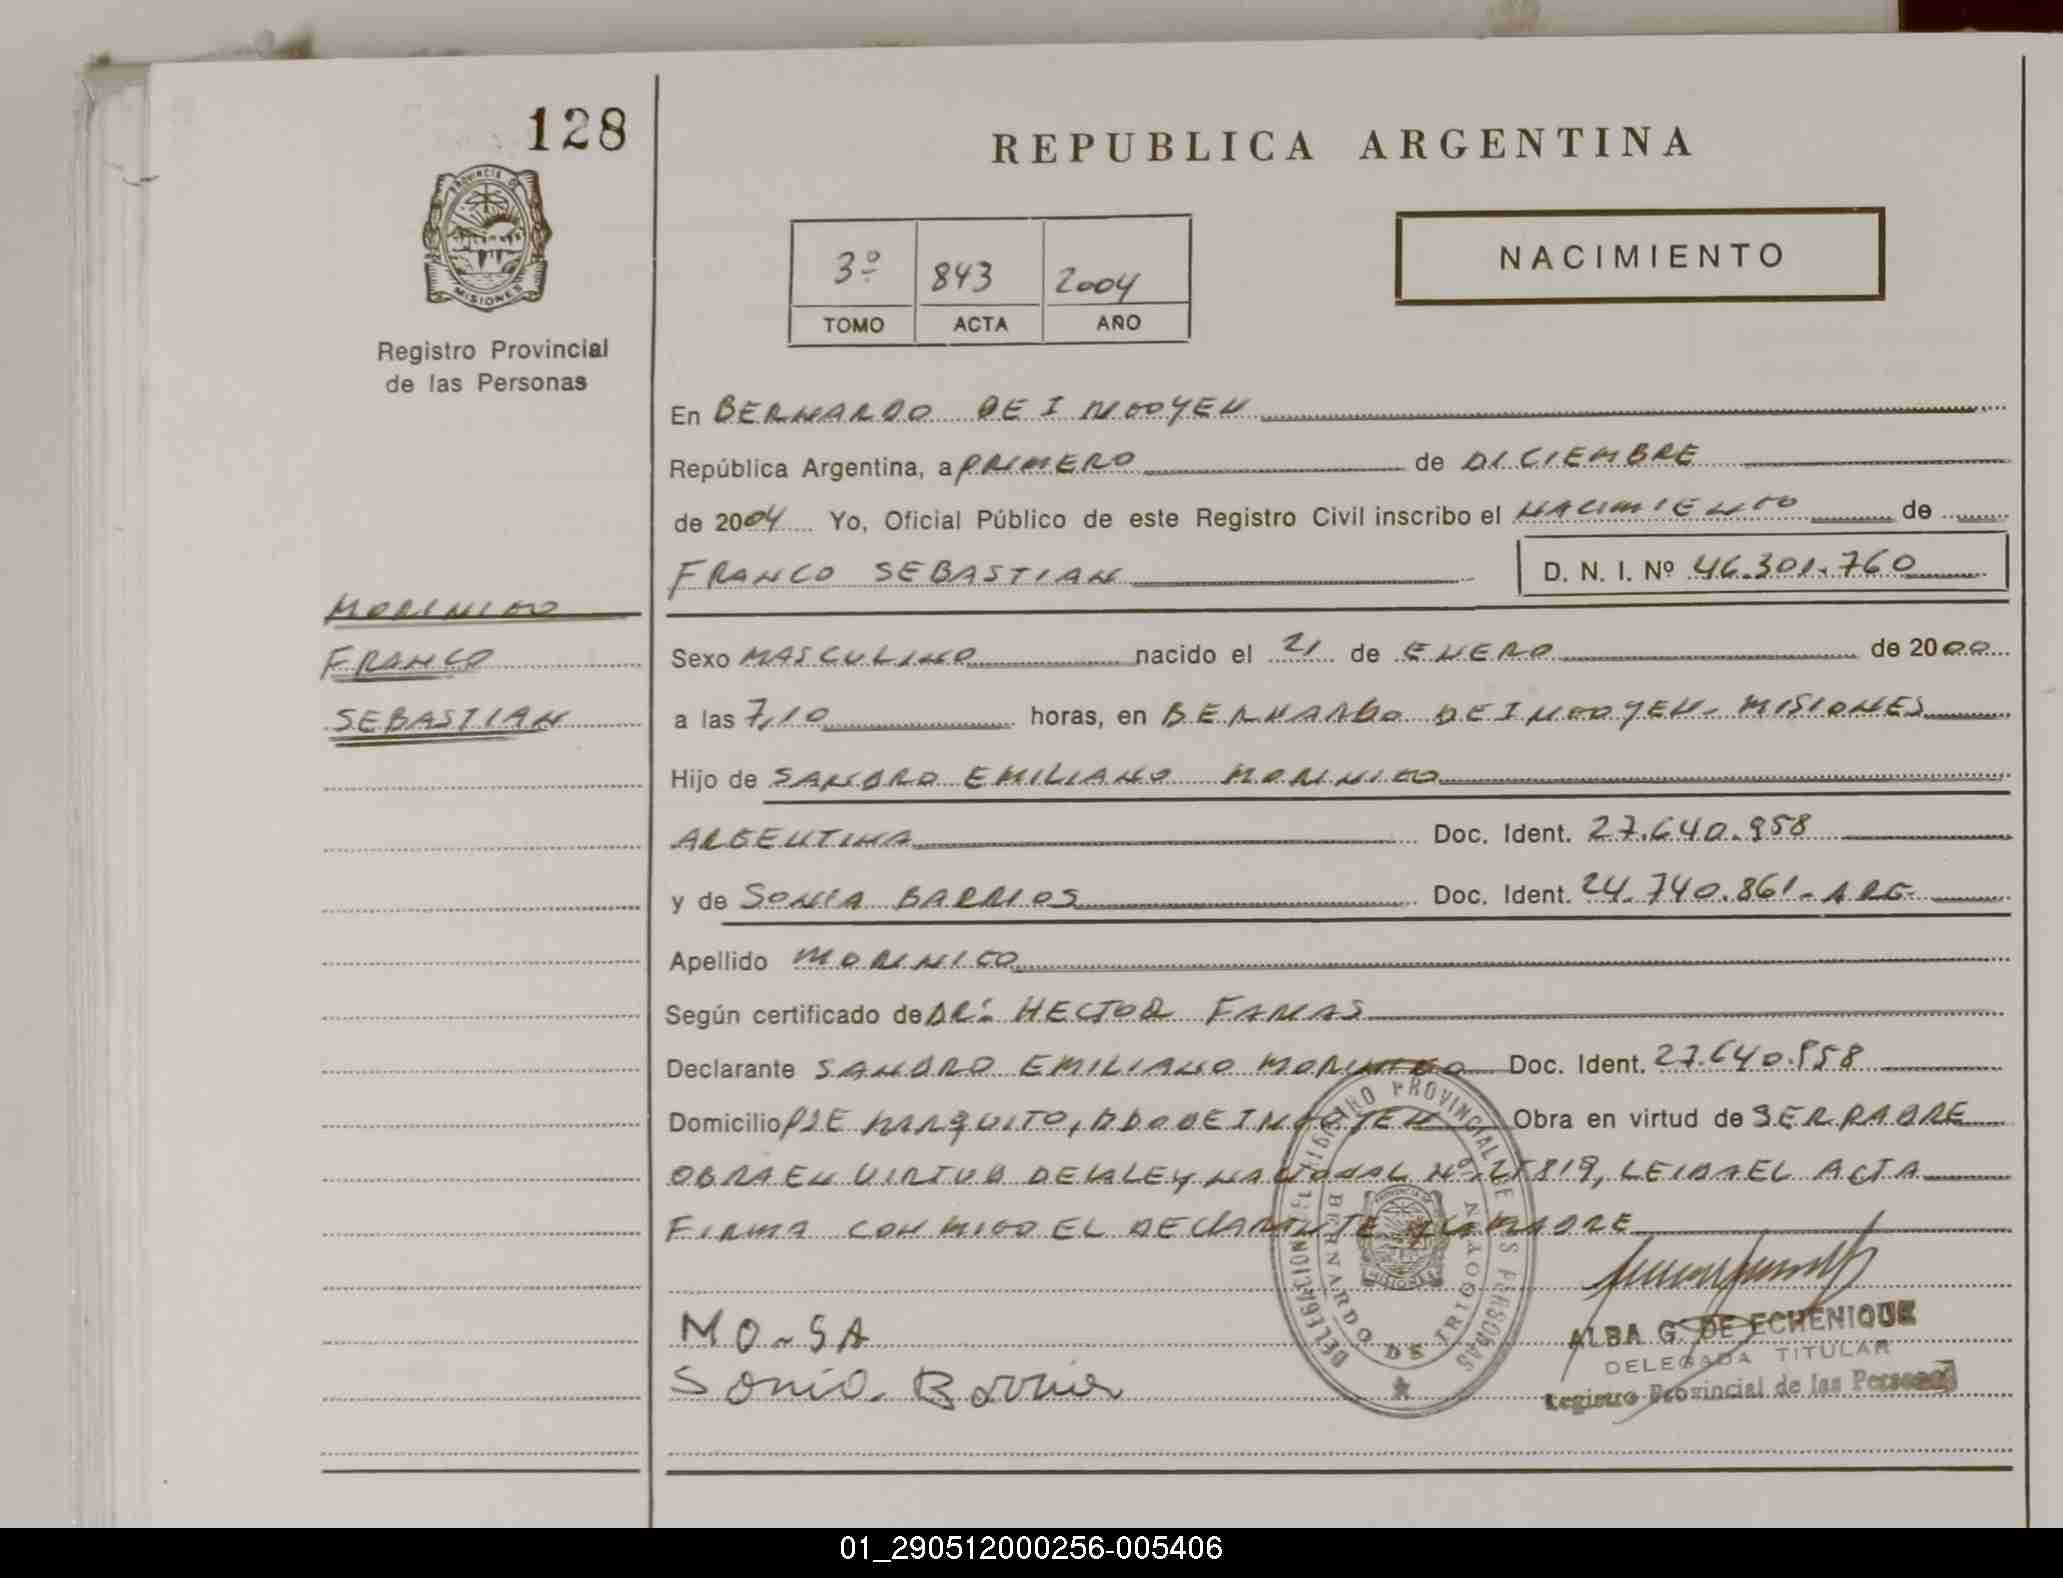 128
REPUBLICA ARGENTINA
PROVINCIA DE
MISIONES
NACIMIENTO
3º 843 2004
TOMO ACTA AÑO
Registro Provincial
de las Personas
En BERNARDO DE IRIGOYEN
República Argentina, a PRIMERO de DICIEMBRE
de 2004 Yo, Oficial Público de este Registro Civil inscribo el NACIMIENTO de
FRANCO SEBASTIAN D. N. I. Nº 46.301.760
MORINIGO
FRANCO
SEBASTIAN
Sexo MASCULINO nacido el 21 de ENERO de 2000
a las 7,10 horas, en BERNARDO DE IRIGOYEN - MISIONES
Hijo de SANDRO EMILIANO MORINIGO
ARGENTINA Doc. Ident. 27.640.958
y de SONIA BARRIOS Doc. Ident. 24.740.861 - ARG.
Apellido MORINIGO
Según certificado de DR. HECTOR
Declarante SANDRO EMILIANO MORINIGO Doc. Ident. 27.640.958
Domicilio PJE , BDO DE IRIGOYEN Obra en virtud de SER PADRE
OBRA EN VIRTUD DE LA LEY NACIONAL Nº 25819, LEIDA EL ACTA
FIRMA CONMIGO EL DECLARANTE Y LA MADRE
DELEGACION REGISTRO PROVINCIAL DE LAS PERSONAS
BERNARDO DE IRIGOYEN
MISIONES
MO-SA
Sonia Barrios
ALBA G. DE ECHENIQUE
DELEGADA TITULAR
Registro Provincial de las Personas
01_290512000256-005406